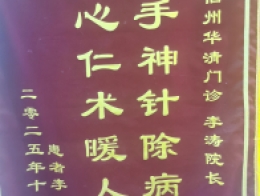 州华清门诊 李涛院长
手神针除病
心仁术暖人
患者李
二零二五年十